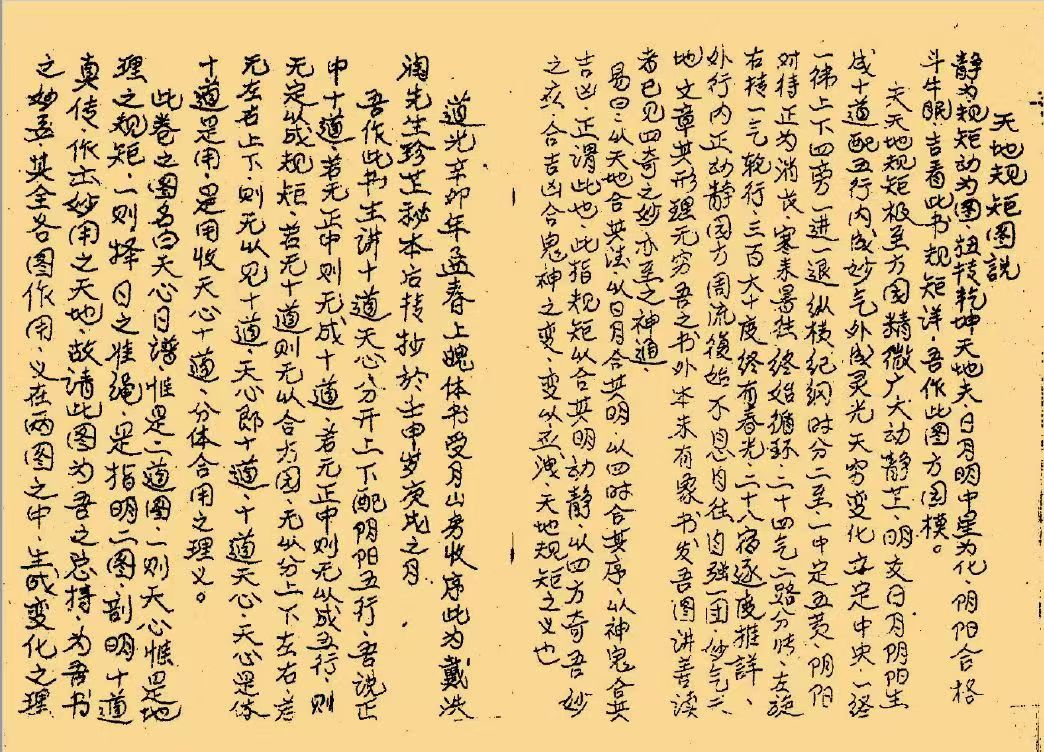 天地规矩图説
静为规矩动为图、扭转乾坤天地夫、日月明中星为化、阴阳合格
斗牛眠、吉看此书规矩详、吾作此图方图模。
夫天地规矩极至方图精微广大动静芷一明交日月阴阳生
成十道配五行内成妙气外成灵光天穷变化立定中央一经
一祎上下四旁一进一退纵横纪纲时分二至一中定五黄、阴阳
对待正为消戌、寒来暑往终始循环、二十四气二路分𠯁、左旋
右转一气轮行、三百大十度终有春光、二十八宿逐度推詳、
外行内正动静园方周流復始不息月往自强一团、妙气天
地文章其形理无穷吾之书外本未有象书发吾图讲善读
者已见四奇之妙亦至之神通、
易曰、以天地合其法以日月合其明以四时合其序、以神鬼合其
吉凶正谓此也、此指规矩以合其明动静、以四方奇吾妙
之、合吉凶合鬼神之变、变以洩天地规矩之义也
道光辛卯年孟春上魄体书受月山房收序此为戴洪
润先生珍芷秘本后转抄於壬申岁庚戌之月、
吾作此书生讲十道天心分开上下配阴阳五行、吾说正
中十道、若无正中则无成十道、若无正中则无以成五行、则
无定以成规矩、若无十道则无以合方园、无以分上下左右、若
无左右上下、则无以见十道、天心郎十道、十道天心、天心是体
十道是用、是用收天心十道、分体合用之理义。
此卷之图名曰天心日谱、惟是二道图、一则天心惟是地
理之规矩、一则择日之准绳、是指明二图、剖明十道
真传、作士妙用之天地、故请此图为吾之总持、为吾书
之妙盂、其全各图作用、义在两图之中、生成变化之理